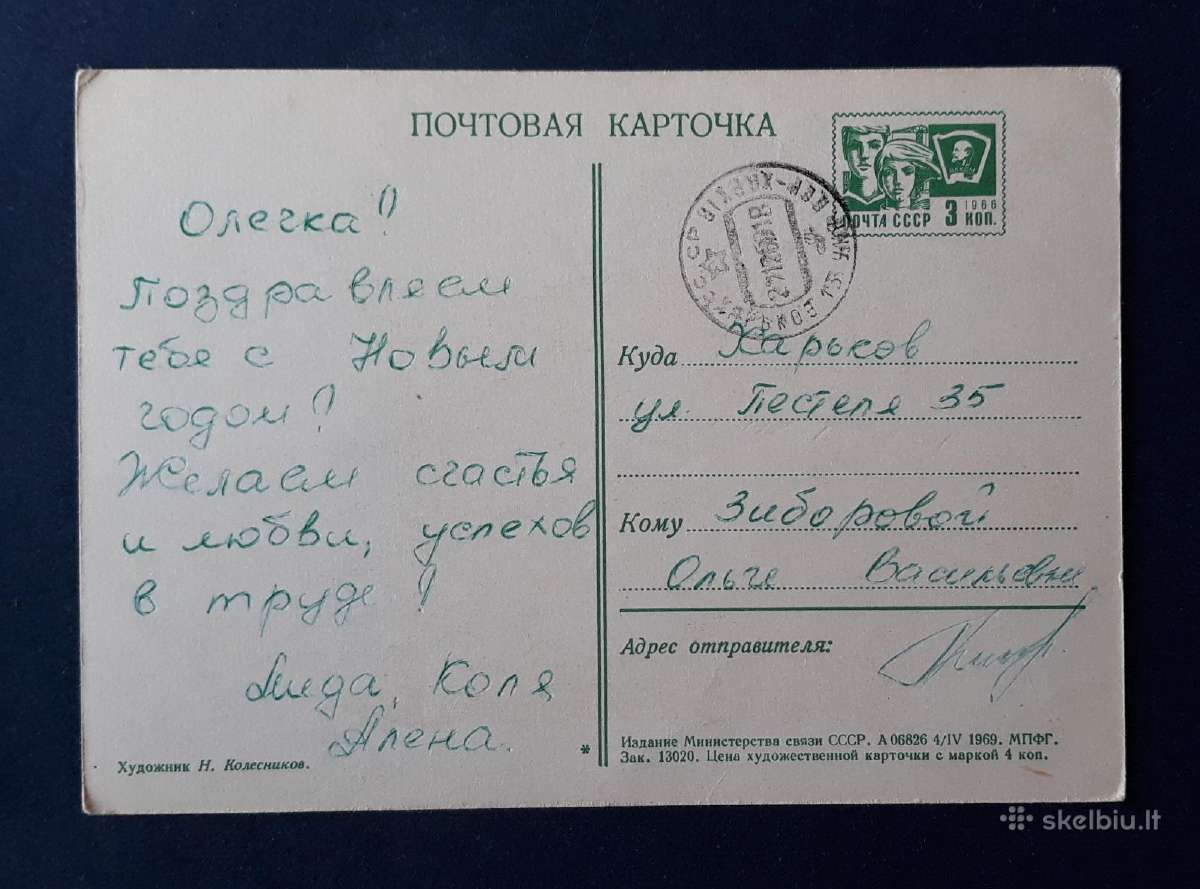 ПОЧТОВАЯ КАРТОЧКА
1966
ПОЧТА СССР 3 КОП.
Олечка!
Поздравляем
тебя с Новым
годом!
Желаем счастья
и любви, успехов
в труде!
Лида, Коля
Алена.
Художник Н. Колесников.
*
Куда Харьков
ул. Пестеля 35
Кому Зиборовой
Ольге Васильевне
Адрес отправителя:
Издание Министерства связи СССР. А 06826 4/IV 1969. МПФГ.
Зак. 13020. Цена художественной карточки с маркой 4 коп.
skelbiu.lt